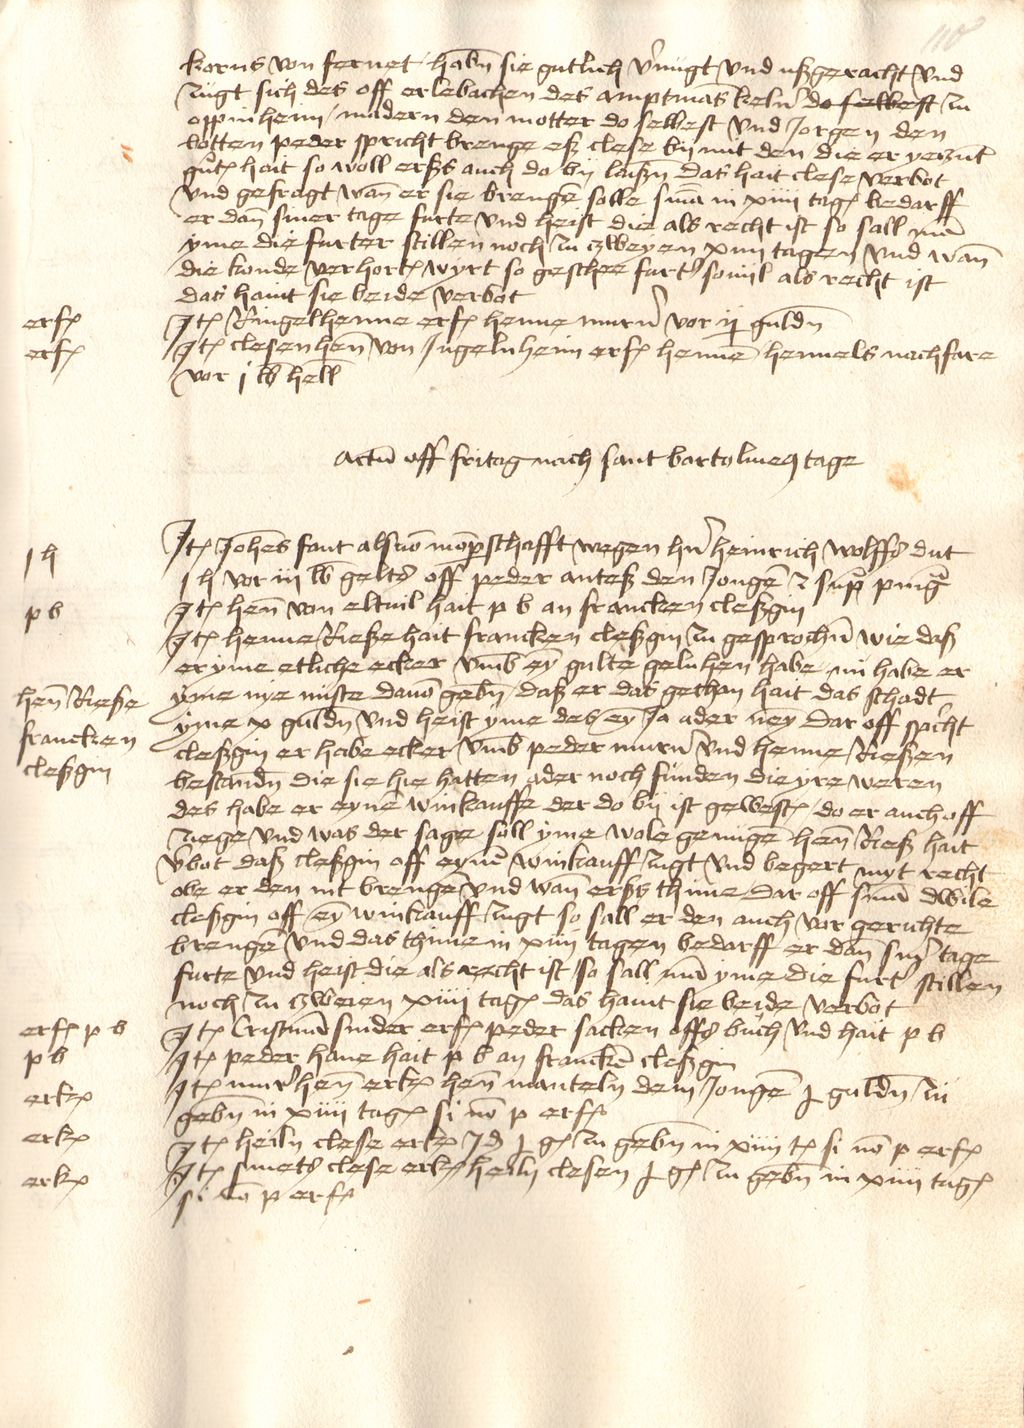 110
korns von fernet habn̄ sie gutlich v̓nugt vnd ußgeracht vnd
zugt sich des off erlebachen des amptmās keln̓ do selbest zu
oppinheim / madern den motter do selbest vnd Jorgen den
botten peder spricht brenge eß clese bij mit den die er verzunt
hait so woll erßs auch do bij laißn̄ das hait clese verbot
vnd gefragt wan̄ er sie brengē solle sm̄a in xiiii tagꝭ bedarff
er dan siner tage furte vnd heist die als recht ist so sall mā
yme die furter stillen noch zu zweyen xiiii tagen vnd wan̄
die konde verhortꝭ wyrt so geschee furt̓ souil als recht ist
das haint sie beide verbot
erfꝭ
Jtꝭ Ringelhenne erfꝭ henne murer̓ vor ij guldn̄
erfꝭ
Jtꝭ clesenhen̄ von Jngelnheim erfꝭ henne hennels nachfare
vor j lb hell̄
Actū off fritag nach sant bartolmeꝯ tage
j h
Jtꝭ Joh̄es faut als vō mōp̄schafft wegen hr̓ heinrich wolffs̓ dut
j h vor iii lb gelts̓ off peder anteß den Jongē
p b
Jtꝭ hen̄ von eltuil hait p b an francken cleßgin
hen̄ Rieße
francken
cleßgin
Jtꝭ henne Rieße hait francken cleßgin zu gesprochn̄ wie daß
er yme etliche ecker vmb eȳ gulte geluhen habe nu habe er
yme nye niiste dauō gebn̄ / daß er das gethan hait das schadt
yme x guldn̄ vnd heist yme des eȳ Ja ader neȳ Dar off sp̓icht
cleßgin er habe ecker vmb peder murer̓ vnd henne Rießen
bestandn̄ die sie hie hatten ader noch funden die yre weren
des habe er eynē winkauffe der do bij ist gewestꝭ / do er auch off
zuege vnd was der sage sull yme wole genugē hen̄ Rieß hait
v̓bot daß cleßgin off eynē winkauff zugt vnd begert myt recht
obe er den nit brengē vnd wan̄ erßs thune Dar off sm̄a dwile
cleßgin off eȳ winkauff zugt so sall er den auch vor gerichte
brengē vnd das thune in xiiii tagen bedarff er dan̄ sin̓ tage
furte vnd heist die als recht ist so sall mā yme die furt̓ stillen
noch zu zweien xiiii tagꝭ das haint sie beide verbot
erfꝭ p b
Jtꝭ Cristmā snider erfꝭ peder sacken offs̓ buch vnd hait p b
p b
Jtꝭ peder hane hait p b an franckē cleßgin
erkꝭ
Jtꝭ mur̓hen̄ erkꝭ hen̄ manteln dem Jongē j guldn̄ zu
gebn̄ in xiiii tagꝭ si nō p erfꝭ
erkꝭ
Jtꝭ heiln clese erkꝭ Jd j gꝭ zu gebn̄ in xiiii tꝭ si nō p erfꝭ
erkꝭ
Jtꝭ smets̓ clese erkꝭ heiln clesen j gꝭ zu gebn̄ in xiiii tagꝭ
si nō p erfꝭ